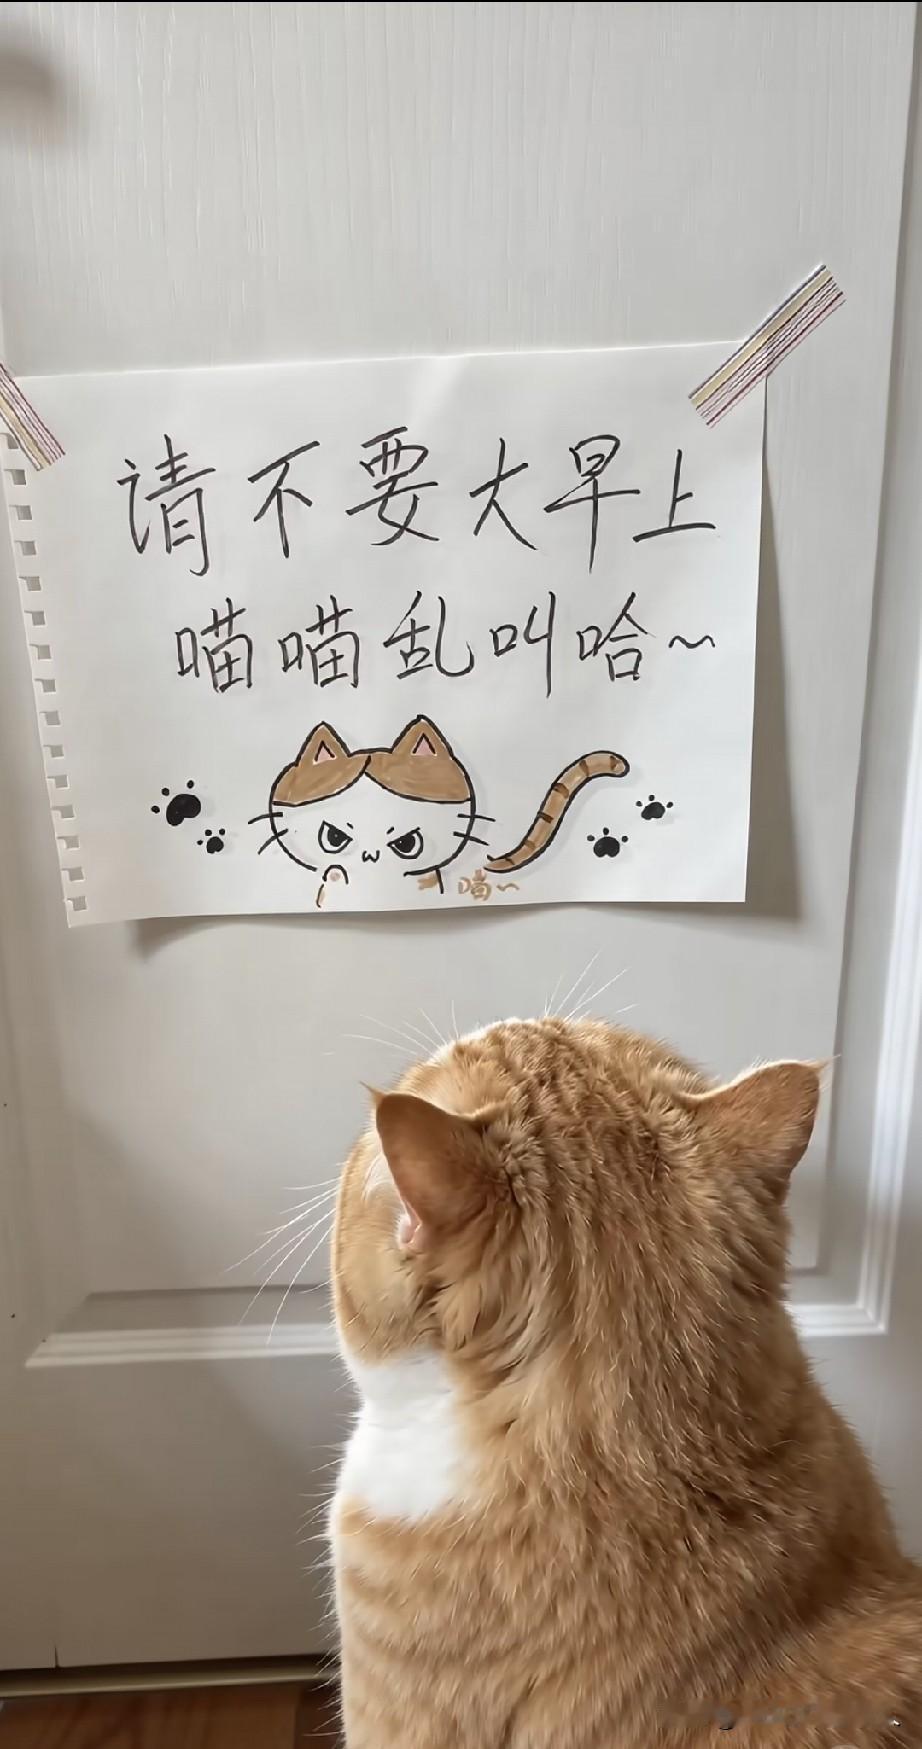 请不要大早上
喵喵乱叫哈~
喵~